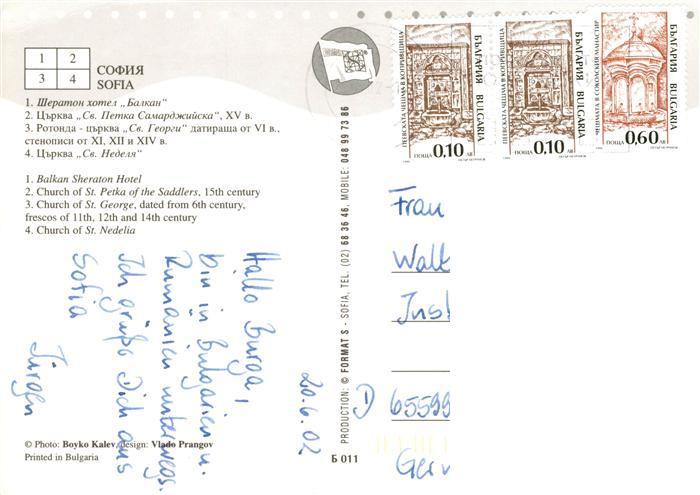 1 2
3 4
СОФИЯ
SOFIA
1. Шератон хотел „Балкан“
2. Църква „Св. Петка Самарджийска“, XV в.
3. Ротонда - църква „Св. Георги“ датираща от VI в.,
стенописи от XI, XII и XIV в.
4. Църква „Св. Неделя“
1. Balkan Sheraton Hotel
2. Church of St. Petka of the Saddlers, 15th century
3. Church of St. George, dated from 6th century,
frescos of 11th, 12th and 14th century
4. Church of St. Nedelia
Hallo Burga,
bin in Bulgarien u.
Rumänien unterwegs.
Ich grüße Dich aus
Sofia
Jürgen
20.6.02
© Photo: Boyko Kalev, design: Vlado Prangov
Printed in Bulgaria
PRODUCTION: © FORMAT S - SOFIA, TEL. (02) 68 36 46, MOBILE: 048 99 73 86
Б 011
ПЕЕВСКАТА ЧЕШМА В КОПРИВЩИЦА
БЪЛГАРИЯ BULGARIA
ПОЩА 0,10 ЛВ
ПЕЕВСКАТА ЧЕШМА В КОПРИВЩИЦА
БЪЛГАРИЯ BULGARIA
ПОЩА 0,10 ЛВ
ЧЕШМАТА В СОКОЛСКИЯ МАНАСТИР
БЪЛГАРИЯ BULGARIA
ПОЩА 0,60 ЛВ
Frau
Walt
Insl
D 65599
Ger